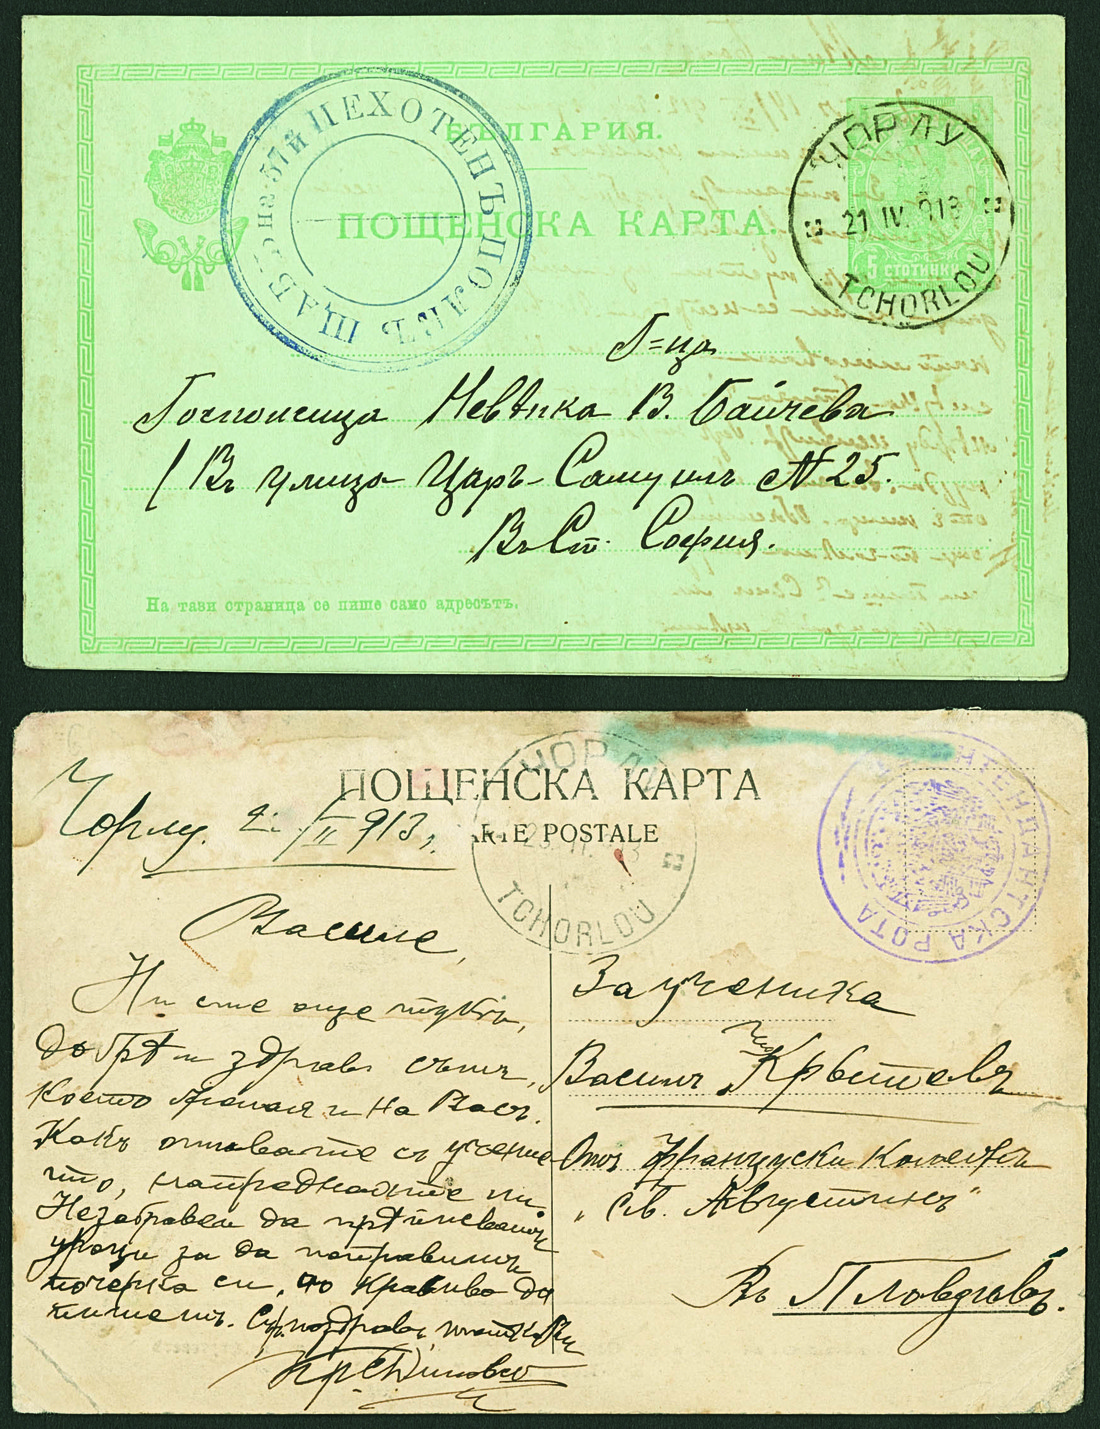 БЪЛГАРИЯ.
ПОЩЕНСКА КАРТА.
ЩАБЪ на 57й ПЕХОТЕНЪ ПОЛКЪ
ЧОРЛУ
21 IV. 913
TCHORLOU
5 СТОТИНКИ
Г=ца
Госпожица Невѣнка В. Байчева
Въ улица Царъ-Самуилъ № 25.
Въ Ст. София.
На тази страница се пише само адресътъ.
ПОЩЕНСКА КАРТА
CARTE POSTALE
ЧОРЛУ
TCHORLOU
ИНТЕНДАНТСКА РОТА
Чорлу. 913
Василе,
Ни сме още тука,
добрѣ и здрави съмъ,
което желая и на Васъ.
Какъ отивате съ учение-
то, напредвате ли
Незабравяй да прѣписвашъ
уроци за да поправишъ
почерка си, по красиво да
пишешъ. Съ поздравъ
За ученика
Василъ Кръстевъ
Отъ Француски Колежъ
„Св. Августинъ"
Въ Пловдивъ.